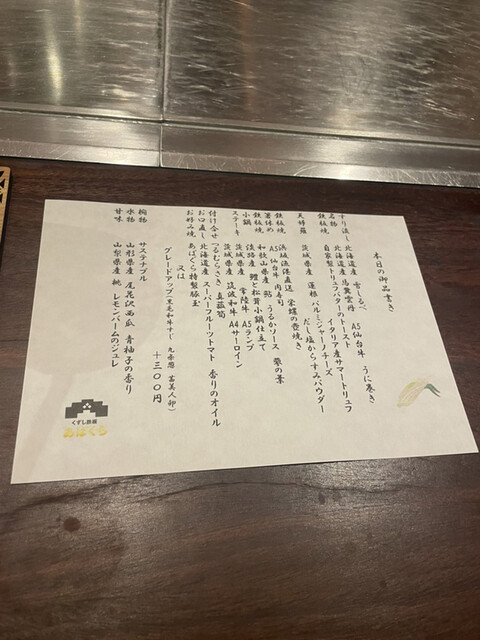 本日の御品書き
すり流し 北海道産 雪しるべ
名物 北海道産 馬糞雲丹 A5仙台牛 うに巻き
鉄板焼 自家製トリュフバターのトースト イタリア産サマートリュフ
天婦羅 茨城県産 蓮根 パルミジャーノチーズ
だし塩からすみパウダー
鉄板焼 浜坂漁港直送 栄螺の壺焼き
箸休め A5仙台牛 肉寿司
鉄板焼 和歌山県産 鮎 うるかソース 蓼の葉
小鍋 淡路産 鱧と松茸小鍋仕立て
ステーキ 茨城県産 常陸牛 A5ランプ
茨城県産 筑波和牛 A4サーロイン
付け合せ つるむらさき 真菰筍
お口直し 北海道産 スーパーフルーツトマト 香りのオイル
お好み焼 あばぐら特製豚玉
又は
グレードアップ(黒毛和牛すじ 九条葱 富美人卵)
+三〇〇円
椀物 サステナブル
水物 山形県産 尾花沢西瓜 青柚子の香り
甘味 山梨県産 桃 レモンバームのジュレ
くずし鉄板
あばぐら